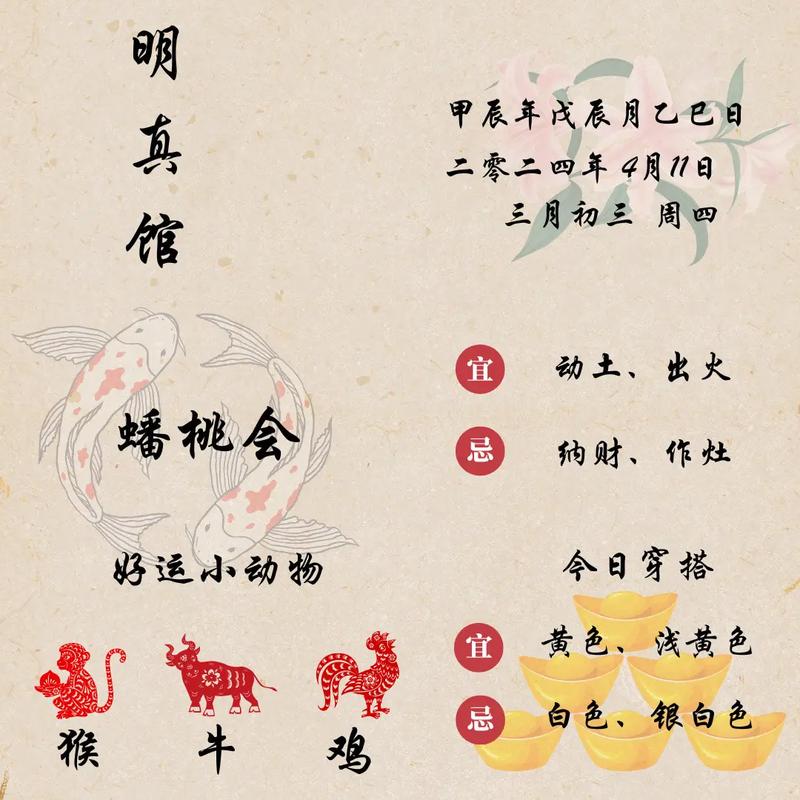 明真馆
甲辰年戊辰月乙巳日
二零二四年 4月11日
三月初三 周四
宜 动土、出火
忌 纳财、作灶
蟠桃会
好运小动物
猴 牛 鸡
今日穿搭
宜 黄色、浅黄色
忌 白色、银白色